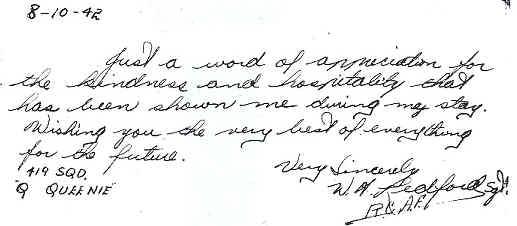 8-10-42
Just a word of appreciation for
the kindness and hospitality that
has been shown me during my stay.
Wishing you the very best of everything
for the future.
Very Sincerely
419 SQD.
W. A. Ledford Sgt.
"Q QUEENIE"
R.C.A.F.